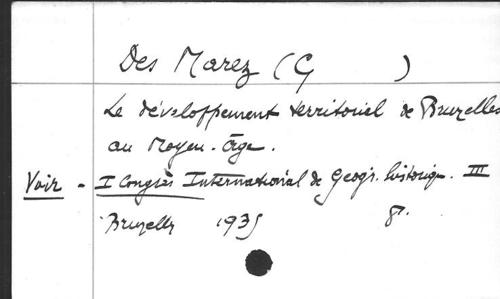 Des Marez (G )
Le développement territorial de Bruxelles
au Moyen-Âge.
Voir - I Congrès International de Géogr. historique. III
Bruxelles 1935 8°.